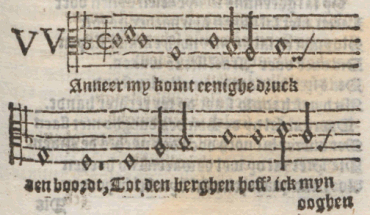 VV
Anneer my komt eenighe druck
aen boordt, Tot den berghen heff' ick myn
ooghen